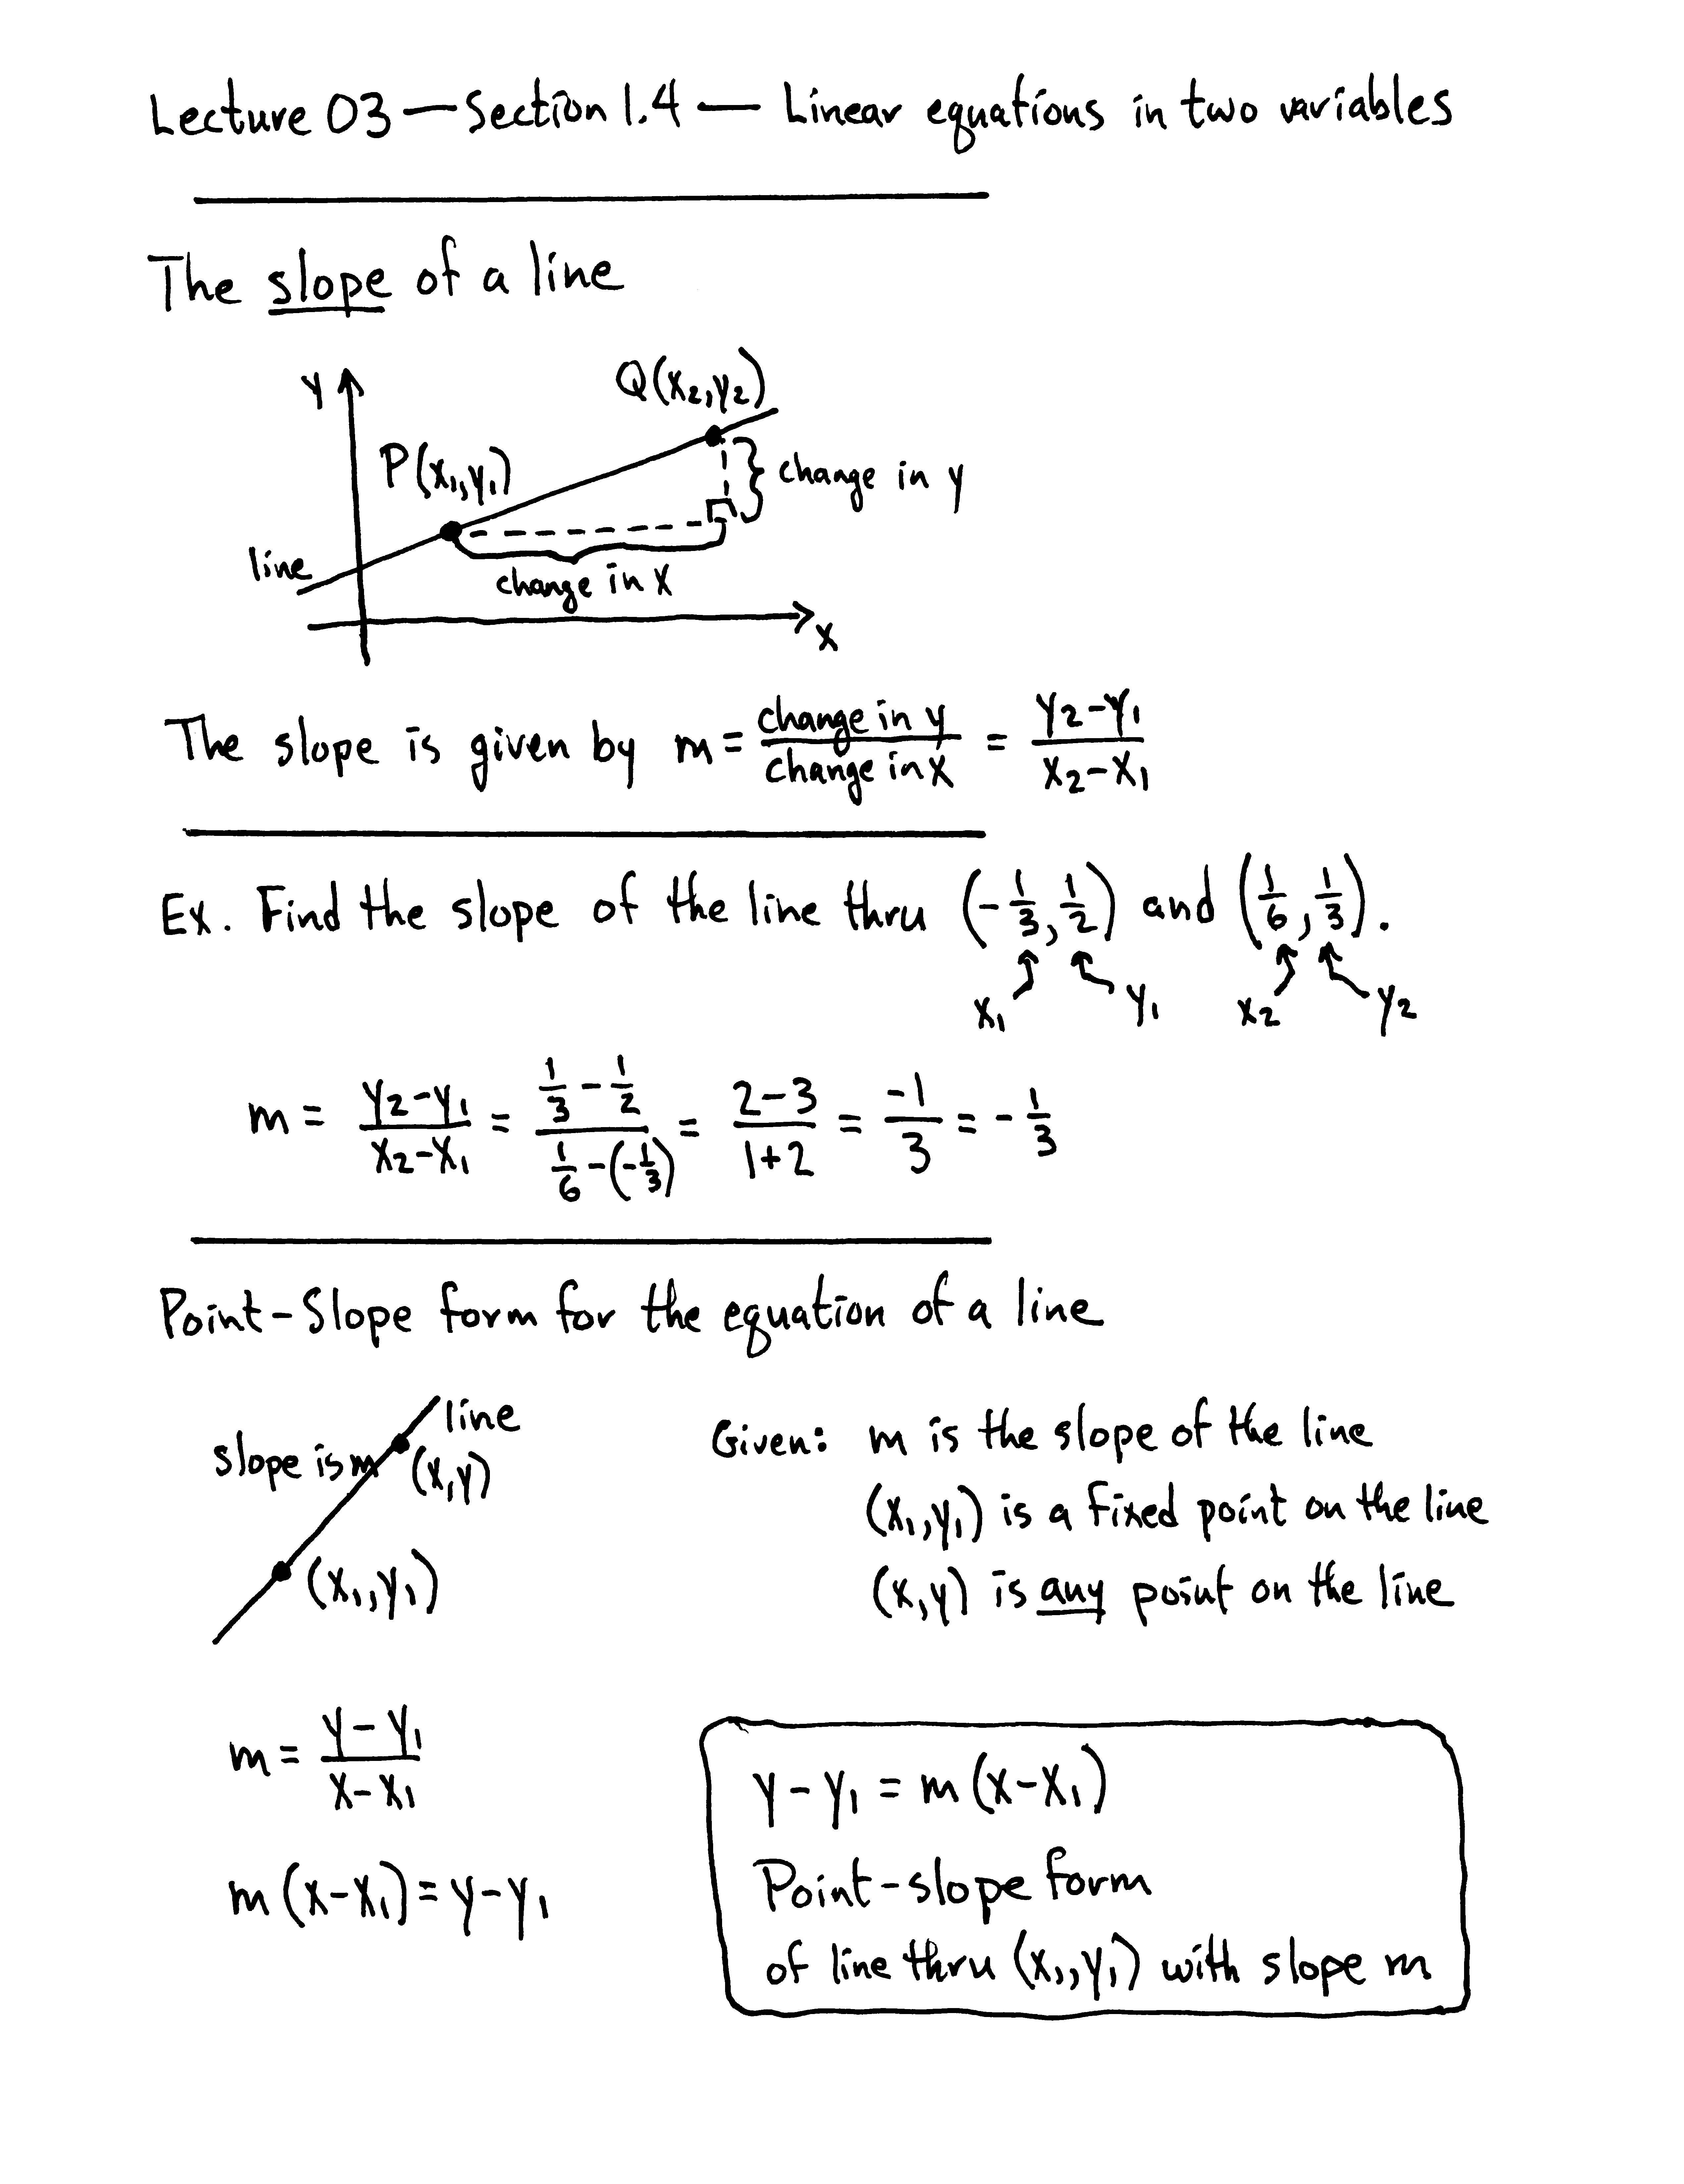 Lecture 03 — Section 1.4 — Linear equations in two variables
The slope of a line
y
Q(x₂,y₂)
P(x₁,y₁)
change in y
line
change in x
x
The slope is given by m = (change in y)/(change in x) = (y₂-y₁)/(x₂-x₁)
Ex. Find the slope of the line thru (-1/3, 1/2) and (1/6, 1/3).
x₁ y₁ x₂ y₂
m = (y₂-y₁)/(x₂-x₁) = (1/3 - 1/2)/(1/6 - (-1/3)) = (2-3)/(1+2) = -1/3 = - 1/3
Point-Slope form for the equation of a line
line
slope is m
(x,y)
(x₁,y₁)
Given: m is the slope of the line
(x₁,y₁) is a fixed point on the line
(x,y) is any point on the line
m = (y-y₁)/(x-x₁)
m(x-x₁)=y-y₁
y-y₁ = m(x-x₁)
Point-slope form
of line thru (x₁,y₁) with slope m